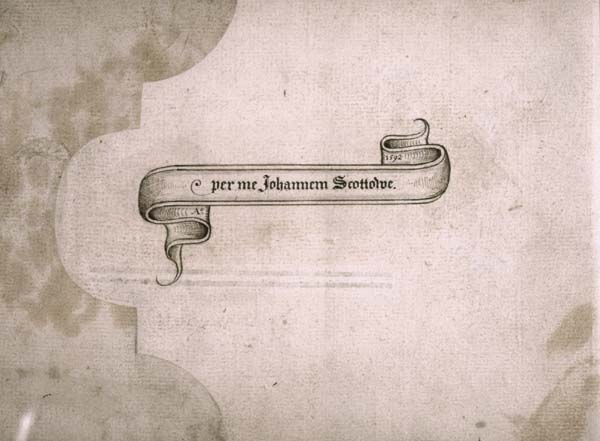 per me Johannem Scottowe.
A°
1592